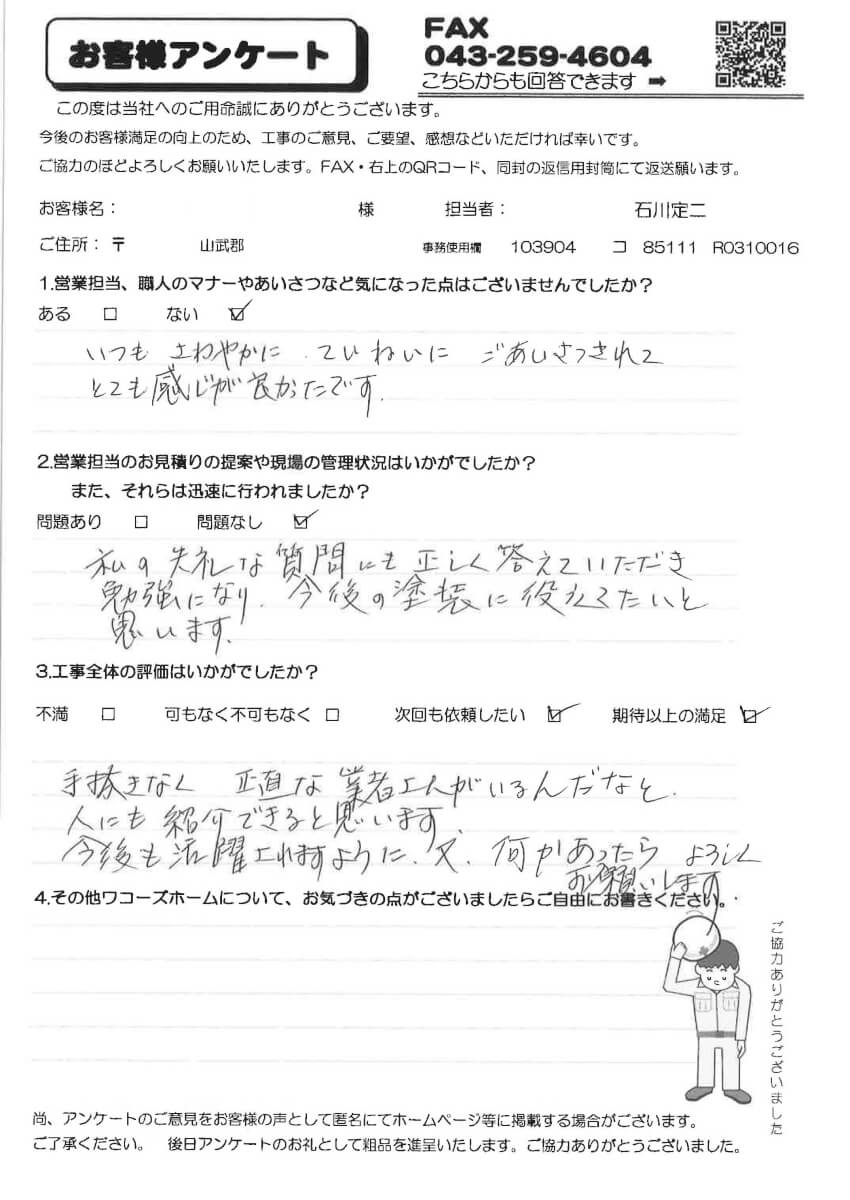 お客様アンケート
FAX
043-259-4604
こちらからも回答できます ➡
この度は当社へのご用命誠にありがとうございます。
今後のお客様満足の向上のため、工事のご意見、ご要望、感想などいただければ幸いです。
ご協力のほどよろしくお願いいたします。FAX・右上のQRコード、同封の返信用封筒にて返送願います。
お客様名： 様 担当者： 石川定二
ご住所：〒 山武郡 事務使用欄 103904 コ 85111 R0310016
1.営業担当、職人のマナーやあいさつなど気になった点はございませんでしたか？
ある □ ない ☑
いつも さわやかに、ていねいに ごあいさつされて
とても感じが良かったです.
2.営業担当のお見積りの提案や現場の管理状況はいかがでしたか？
また、それらは迅速に行われましたか？
問題あり □ 問題なし ☑
私の失礼な質問にも正しく答えていただき
勉強になり、今後の塗装に役立てたいと
思います.
3.工事全体の評価はいかがでしたか？
不満 □ 可もなく不可もなく □ 次回も依頼したい ☑ 期待以上の満足 ☑
手抜きなく 正直な業者さんがいるんだなと.
人にも紹介できると思います.
今後も活躍されますように、又、何かあったら よろしく
お願いします
4.その他ワコーズホームについて、お気づきの点がございましたらご自由にお書きください。
ご協力ありがとうございました
尚、アンケートのご意見をお客様の声として匿名にてホームページ等に掲載する場合がございます。
ご了承ください。 後日アンケートのお礼として粗品を進呈いたします。ご協力ありがとうございました。